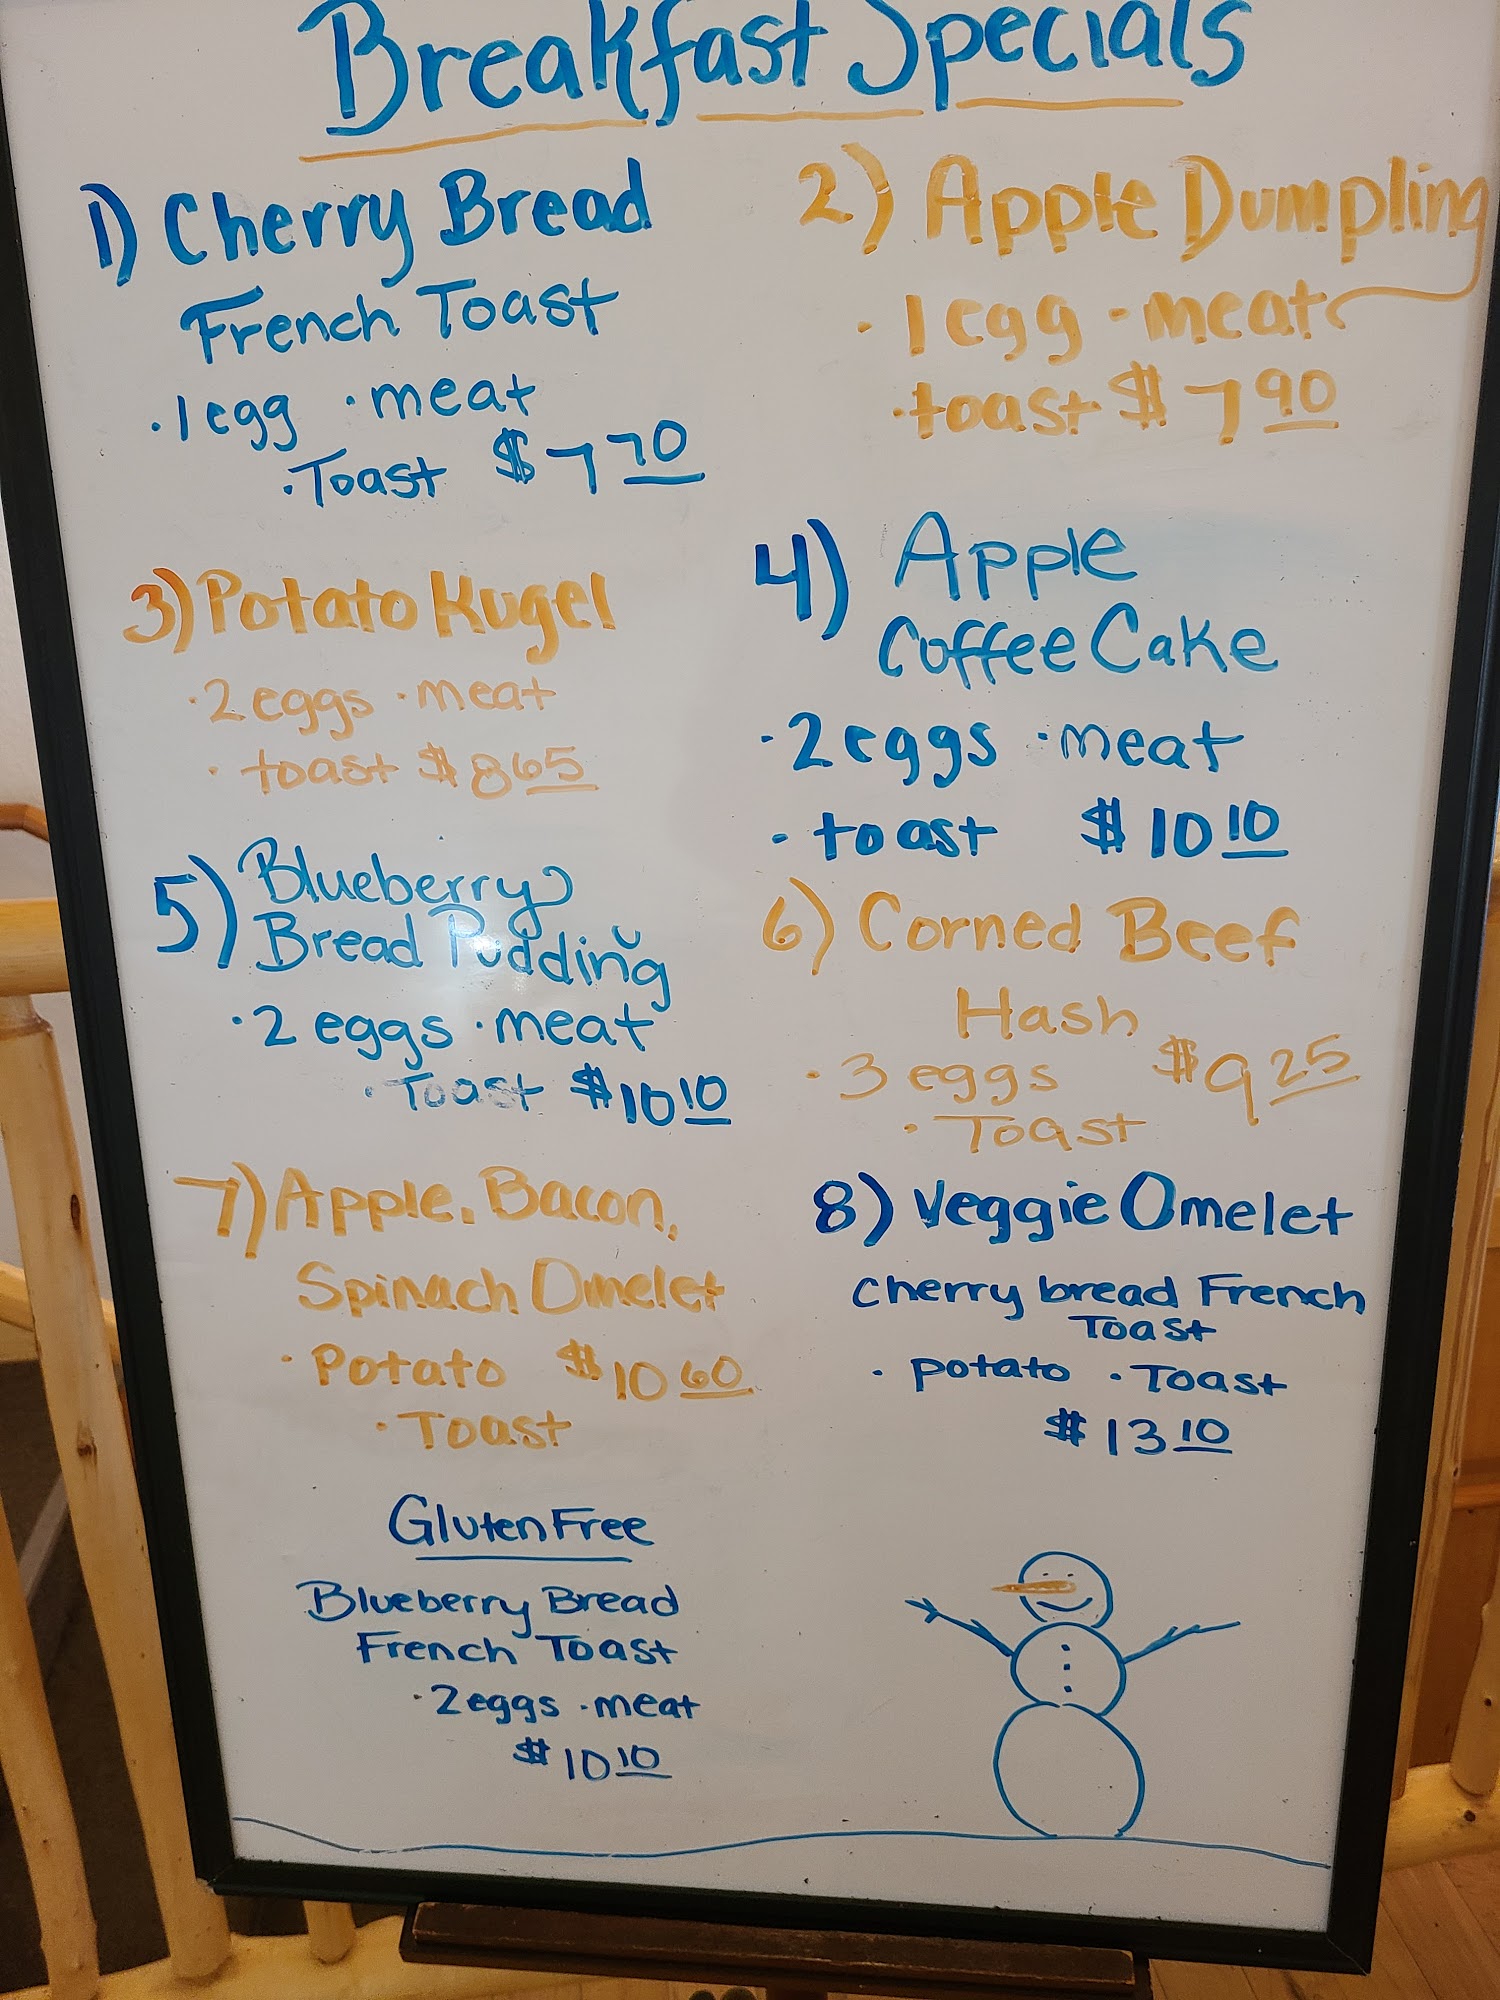 Breakfast Specials
1) Cherry Bread
French Toast
· 1 egg · meat
· Toast $7 70
2) Apple Dumpling
· 1 egg · meat
· toast $7 90
3) Potato Kugel
· 2 eggs · meat
· toast $8 65
4) Apple
Coffee Cake
· 2 eggs · meat
· toast $10 10
5) Blueberry
Bread Pudding
· 2 eggs · meat
· Toast $10 10
6) Corned Beef
Hash
· 3 eggs $9 25
· Toast
7) Apple, Bacon,
Spinach Omelet
· Potato $10 60
· Toast
8) Veggie Omelet
Cherry bread French
Toast
· potato · Toast
$13 10
Gluten Free
Blueberry Bread
French Toast
· 2 eggs · meat
$10 10